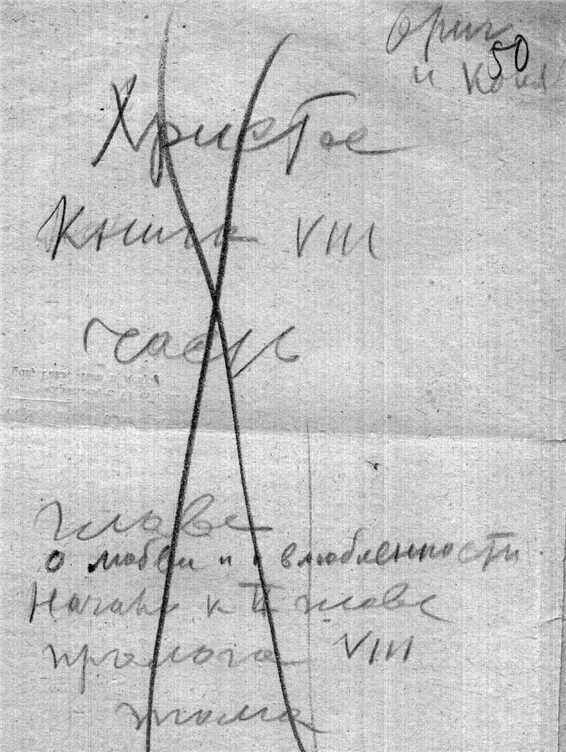 Ориг
50
и копия
Христос
Книга VIII
часть
Глава
о любви и влюбленности
Начало к II главе
пролога VIII
тома